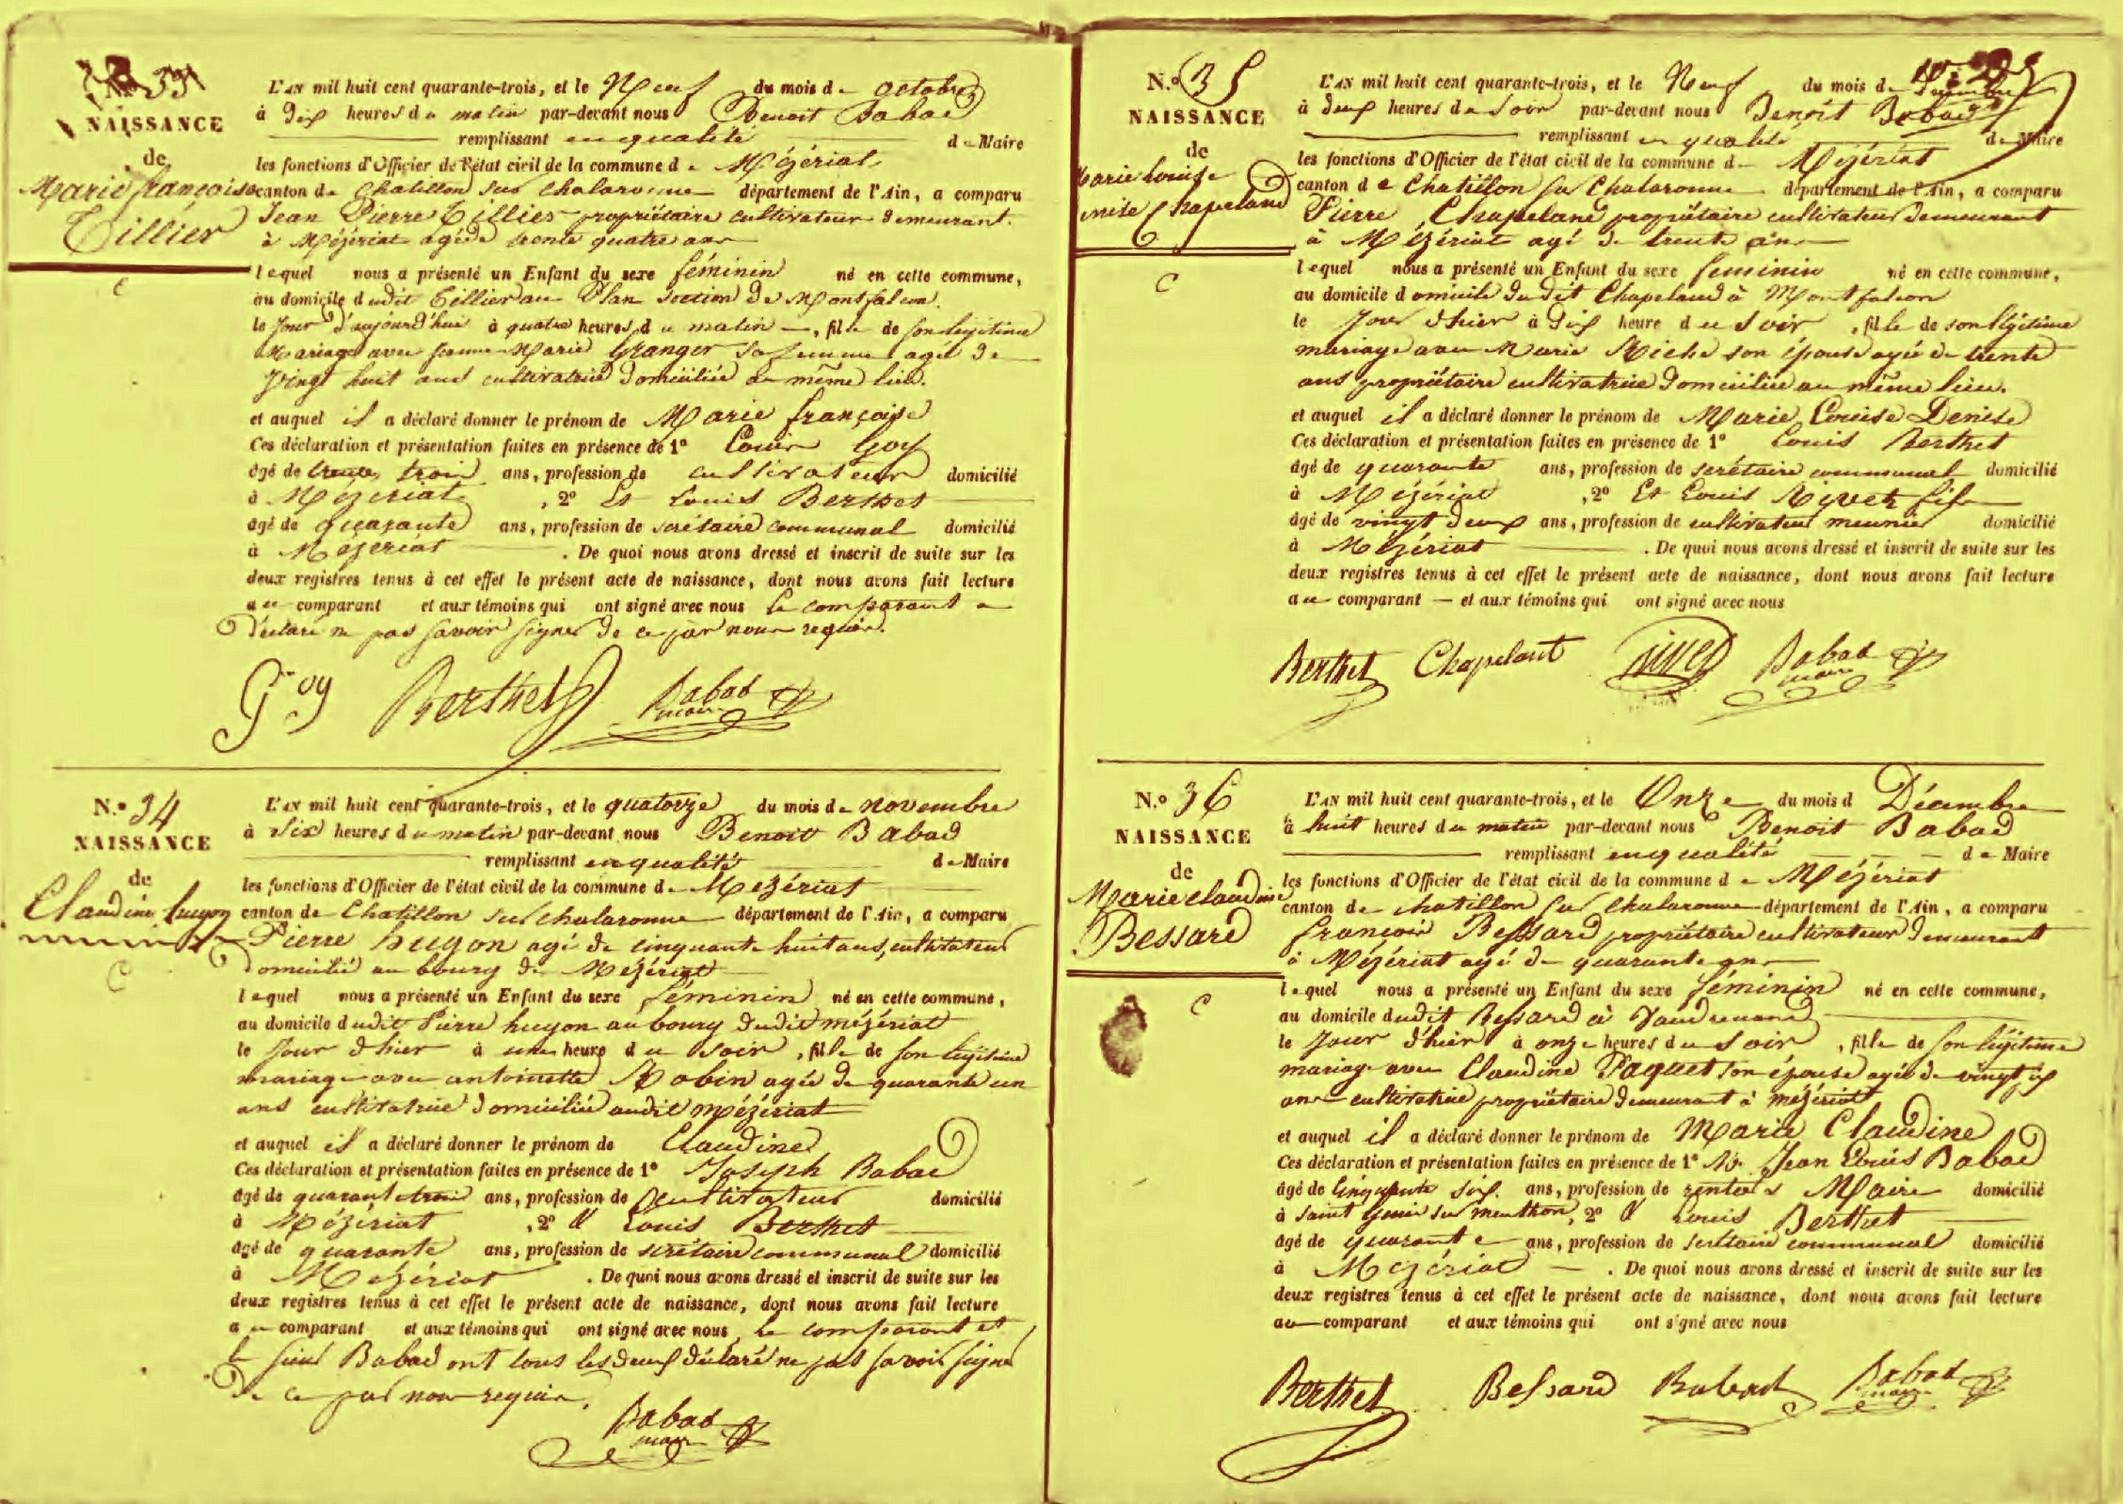 33
NAISSANCE
de
Marie françoise
Tillier
L'AN mil huit cent quarante-trois, et le Neuf du mois de octobre
à dix heures du matin par-devant nous Benoit Babad
remplissant en qualité de Maire
les fonctions d'Officier de l'état civil de la commune de Mézériat
canton de Chatillon sur Chalaronne département de l'Ain, a comparu
Jean Pierre Tillier propriétaire cultivateur demeurant
à Mézériat agé de trente quatre ans
lequel nous a présenté un Enfant du sexe féminin né en cette commune,
au domicile dudit Tillier au Plan section de Montfalcon.
le Jour d'aujourd'hui à quatre heures du matin, fille de son légitime
Mariage avec Marie Granger sa femme agée de
Vingt huit ans cultivatrice domiciliée au même lieu.
et auquel il a déclaré donner le prénom de Marie françoise
Ces déclaration et présentation faites en présence de 1° Louis Goy
âgé de trente trois ans, profession de cultivateur domicilié
à Mézériat, 2° Et Louis Berthet
âgé de quarante ans, profession de secrétaire communal domicilié
à Mézériat. De quoi nous avons dressé et inscrit de suite sur les
deux registres tenus à cet effet le présent acte de naissance, dont nous avons fait lecture
au comparant et aux témoins qui ont signé avec nous le comparant a
déclaré ne pas savoir signer de ce par nous requis.
Goy Berthet Babad maire
N.° 34
NAISSANCE
de
Claudine hugon
L'AN mil huit cent quarante-trois, et le quatorze du mois de novembre
à dix heures du matin par-devant nous Benoit Babad
remplissant en qualité de Maire
les fonctions d'Officier de l'état civil de la commune de Mézériat
canton de Chatillon sur Chalaronne département de l'Ain, a comparu
Pierre hugon agé de cinquante huit ans, cultivateur
domicilié au bourg de Mézériat
lequel nous a présenté un Enfant du sexe féminin né en cette commune,
au domicile dudit Pierre hugon au bourg dudit mézériat
le Jour d'hier à une heure du soir, fille de son légitime
mariage avec antoinette Robin agée de quarante un
ans cultivatrice domiciliée audit mézériat
et auquel il a déclaré donner le prénom de Claudine
Ces déclaration et présentation faites en présence de 1° Joseph Babad
âgé de quarante trois ans, profession de cultivateur domicilié
à Mézériat, 2° & Louis Berthet
âgé de quarante ans, profession de secrétaire communal domicilié
à Mézériat. De quoi nous avons dressé et inscrit de suite sur les
deux registres tenus à cet effet le présent acte de naissance, dont nous avons fait lecture
au comparant et aux témoins qui ont signé avec nous, le comparant et
le sieur Babad ont tous les deux déclaré ne pas savoir signer
de ce par nous requis.
Babad maire
N.° 35
NAISSANCE
de
Marie Louise
Chapeland
L'AN mil huit cent quarante-trois, et le Neuf du mois de
à deux heures du soir par-devant nous Benoît Babad
remplissant en qualité de Maire
les fonctions d'Officier de l'état civil de la commune de Mézériat
canton de Chatillon sur Chalaronne département de l'Ain, a comparu
Pierre Chapeland propriétaire cultivateur demeurant
à Mézériat agé de trente ans
lequel nous a présenté un Enfant du sexe féminin né en cette commune,
au domicile domicile dudit Chapeland à Montfalcon
le Jour d'hier à dix heure du soir, fille de son légitime
mariage avec Marie Riche son épouse agée de trente
ans propriétaire cultivatrice domiciliée au même lieu.
et auquel il a déclaré donner le prénom de Marie Louise Denise
Ces déclaration et présentation faites en présence de 1° Louis Berthet
âgé de quarante ans, profession de secrétaire communal domicilié
à Mézériat, 2° Et Louis Rivet fils
âgé de vingt deux ans, profession de cultivateur meunier domicilié
à Mézériat. De quoi nous avons dressé et inscrit de suite sur les
deux registres tenus à cet effet le présent acte de naissance, dont nous avons fait lecture
au comparant et aux témoins qui ont signé avec nous
Berthet Chapelant Rivet Babad maire
N.° 36
NAISSANCE
de
Marie claudine
Bessard
L'AN mil huit cent quarante-trois, et le Onze du mois d Décembre
à huit heures du matin par-devant nous Benoit Babad
remplissant en qualité de Maire
les fonctions d'Officier de l'état civil de la commune de Mézériat
canton de chatillon sur Chalaronne département de l'Ain, a comparu
françois Bessard propriétaire cultivateur demeurant
à Mézériat agé de quarante ans
lequel nous a présenté un Enfant du sexe féminin né en cette commune,
au domicile dudit Bessard à
le Jour d'hier à onze heures du soir, fille de son légitime
mariage avec Claudine Paquet son épouse agée de vingt six
ans cultivatrice propriétaire demeurant à mézériat
et auquel il a déclaré donner le prénom de Marie Claudine
Ces déclaration et présentation faites en présence de 1° Jean Louis Babad
âgé de Cinquante six ans, profession de rentier Maire domicilié
à saint genis sur menthon, 2° & Louis Berthet
âgé de quarante ans, profession de secrétaire communal domicilié
à Mézériat. De quoi nous avons dressé et inscrit de suite sur les
deux registres tenus à cet effet le présent acte de naissance, dont nous avons fait lecture
au comparant et aux témoins qui ont signé avec nous
Berthet Bessard Babad Babad maire